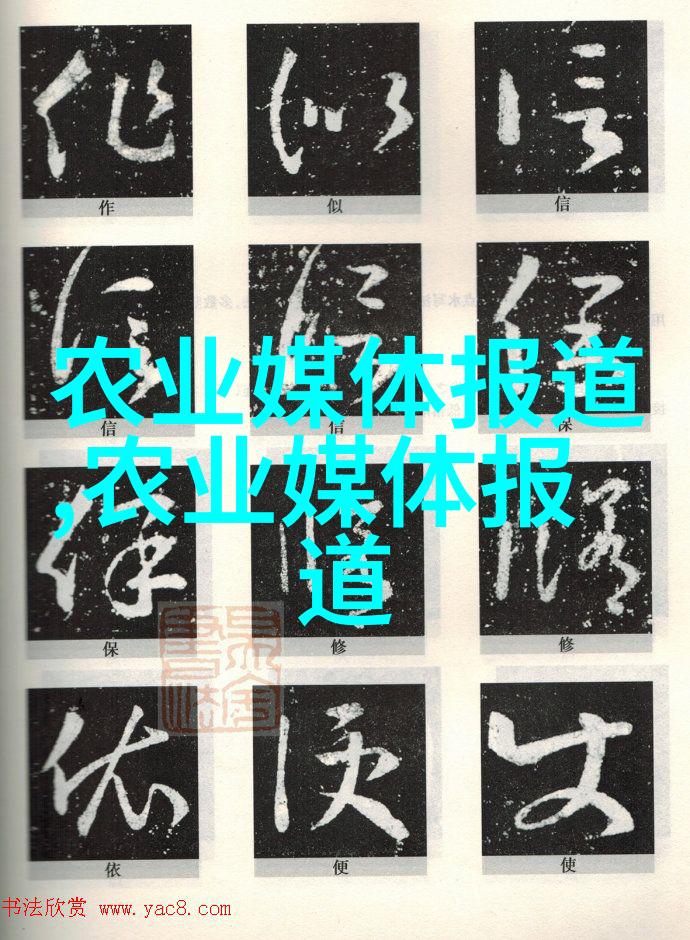 作 似 信
信 信 保
农业媒体报道
,农业媒体报
道
保 修 修
依 便 使
书法欣赏 www.yac8.com